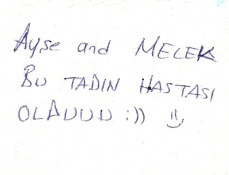 Ayse and MELEK
BU TADIN HASTASI
OLDUUU :))